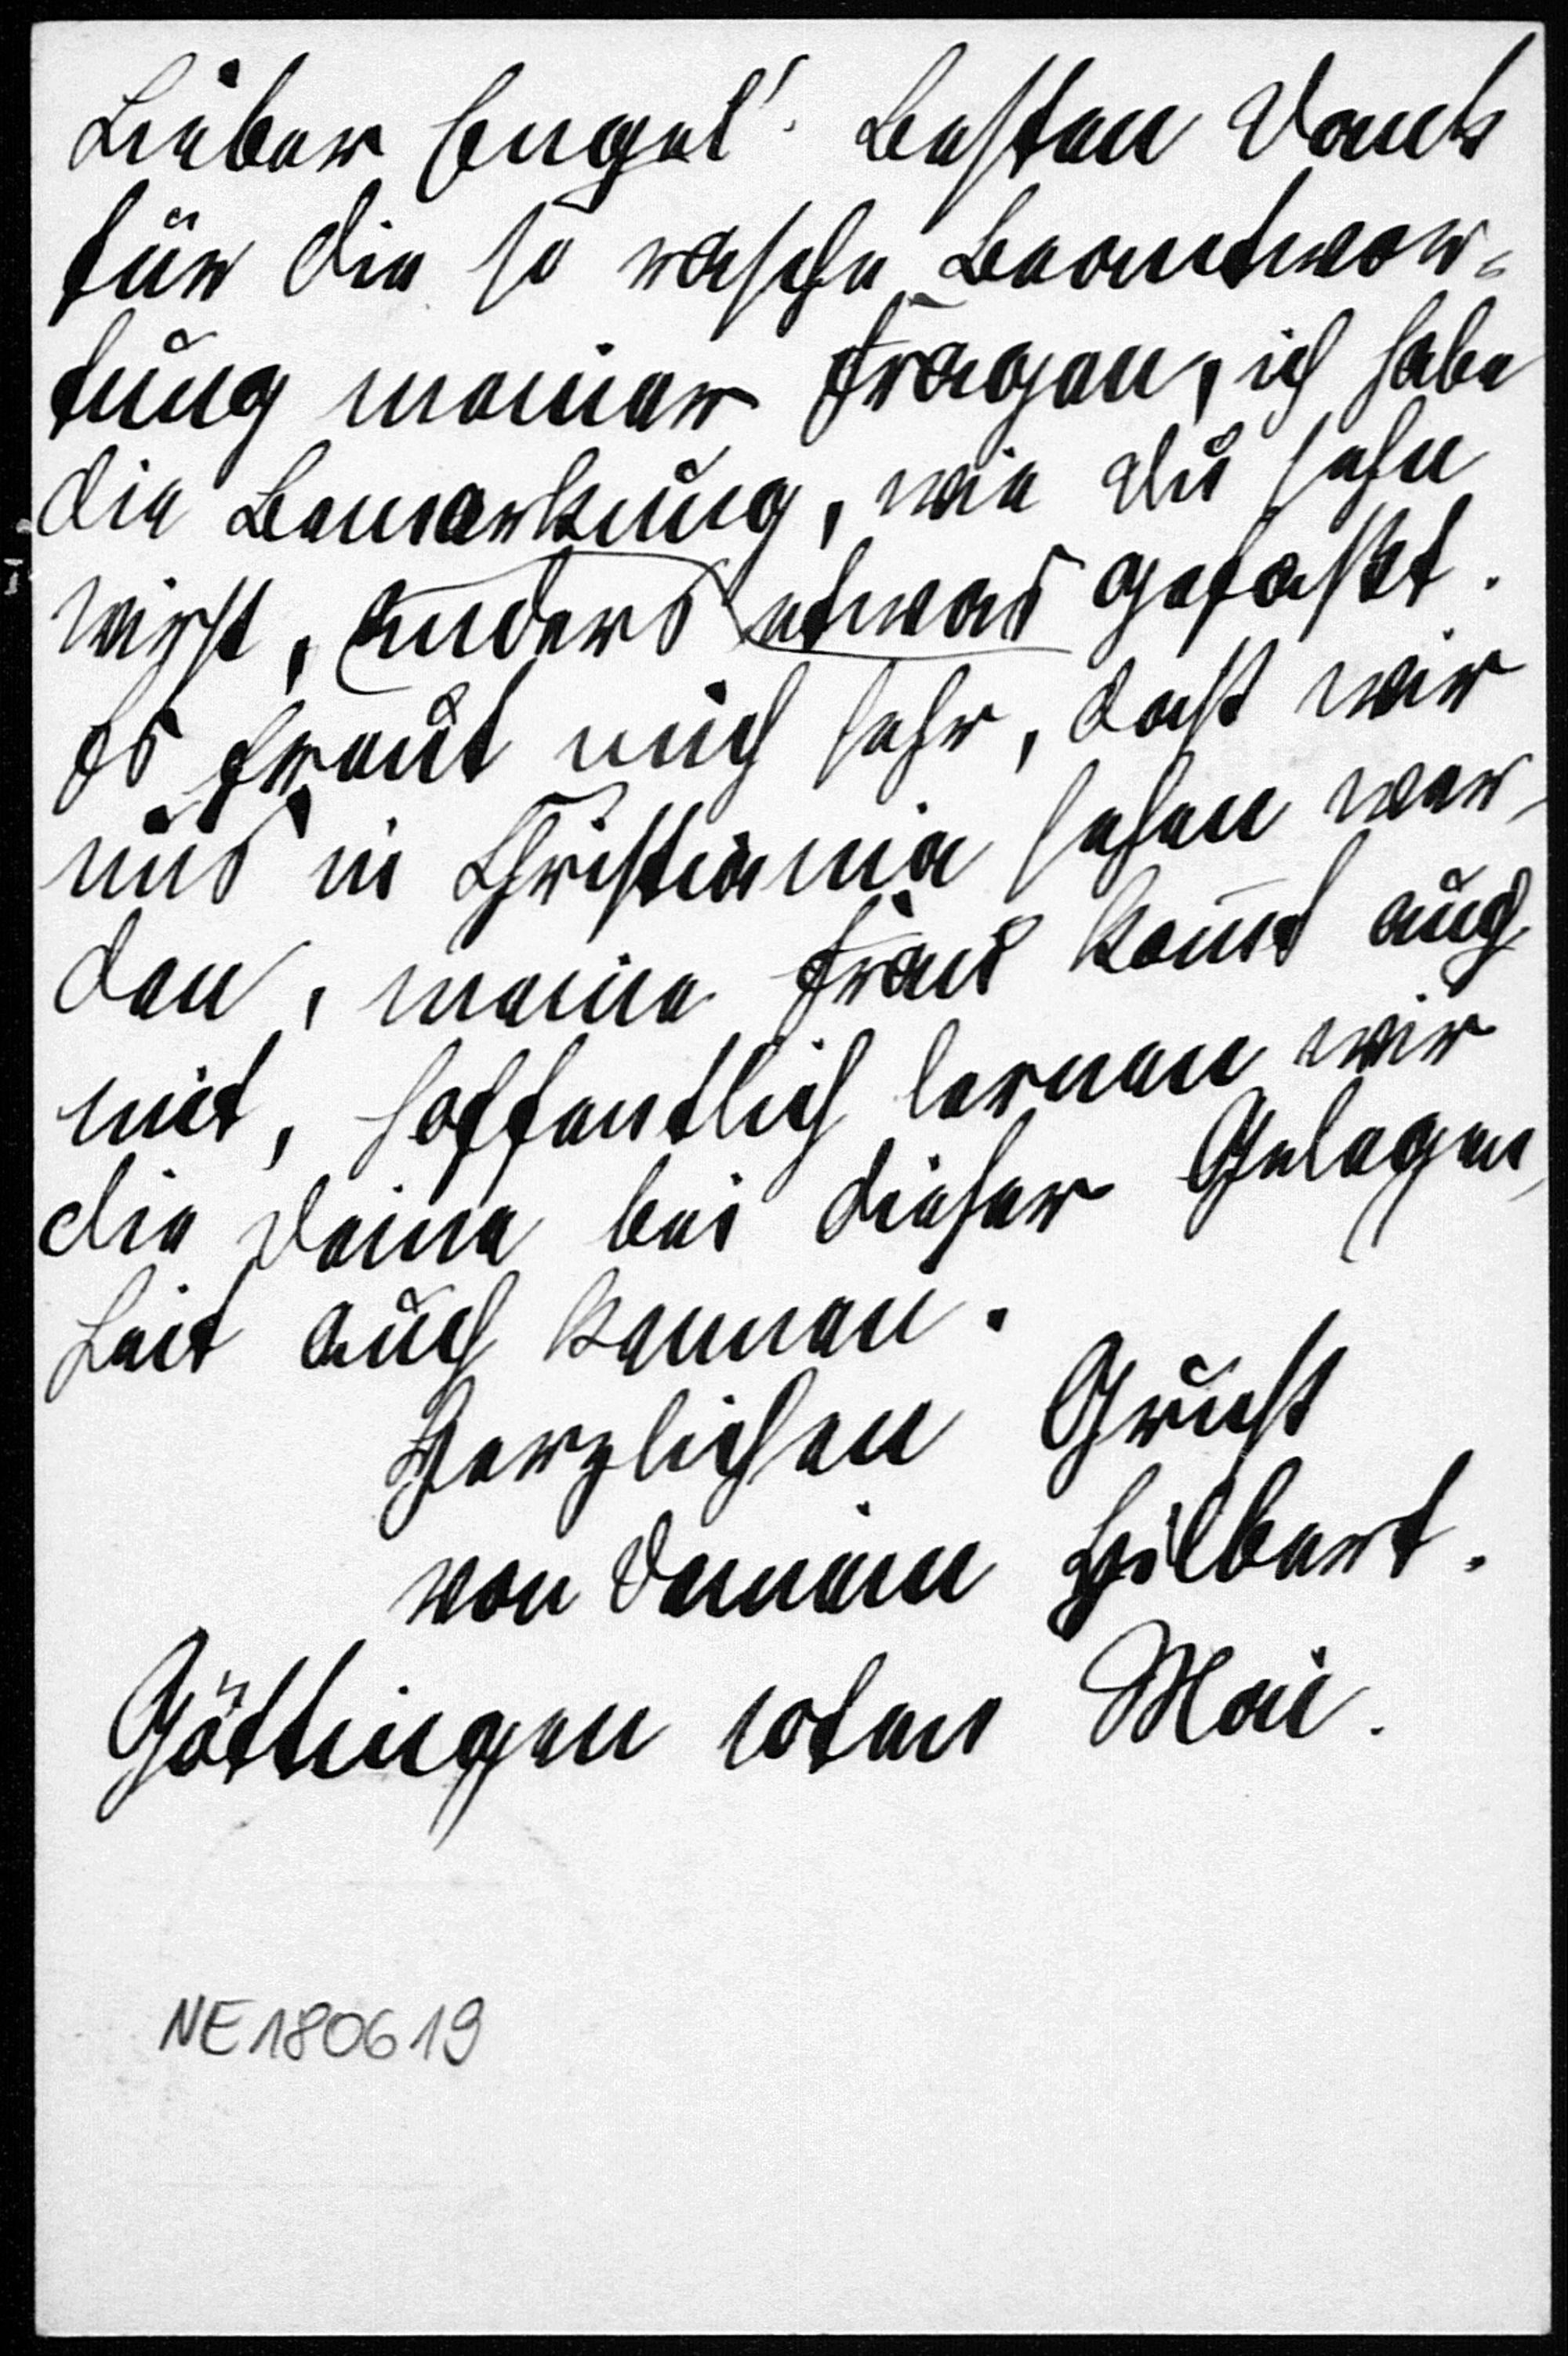 Lieber Engel! Besten Dank
für die so rasche Beantwor-
tung meiner Fragen, ich habe
die Bemerkung, wie Du sehn
wirst, anders etwas gefaßt.
Es freut mich sehr, daß wir
uns in Christiania sehen wer-
den, meine Frau komt auch
mit, hoffentlich lernen wir
die Deine bei dieser Gelegen-
heit auch kennen.
Herzlichen Gruß
von Deinem Hilbert.
Göttingen 10ten Mai.
NE180619